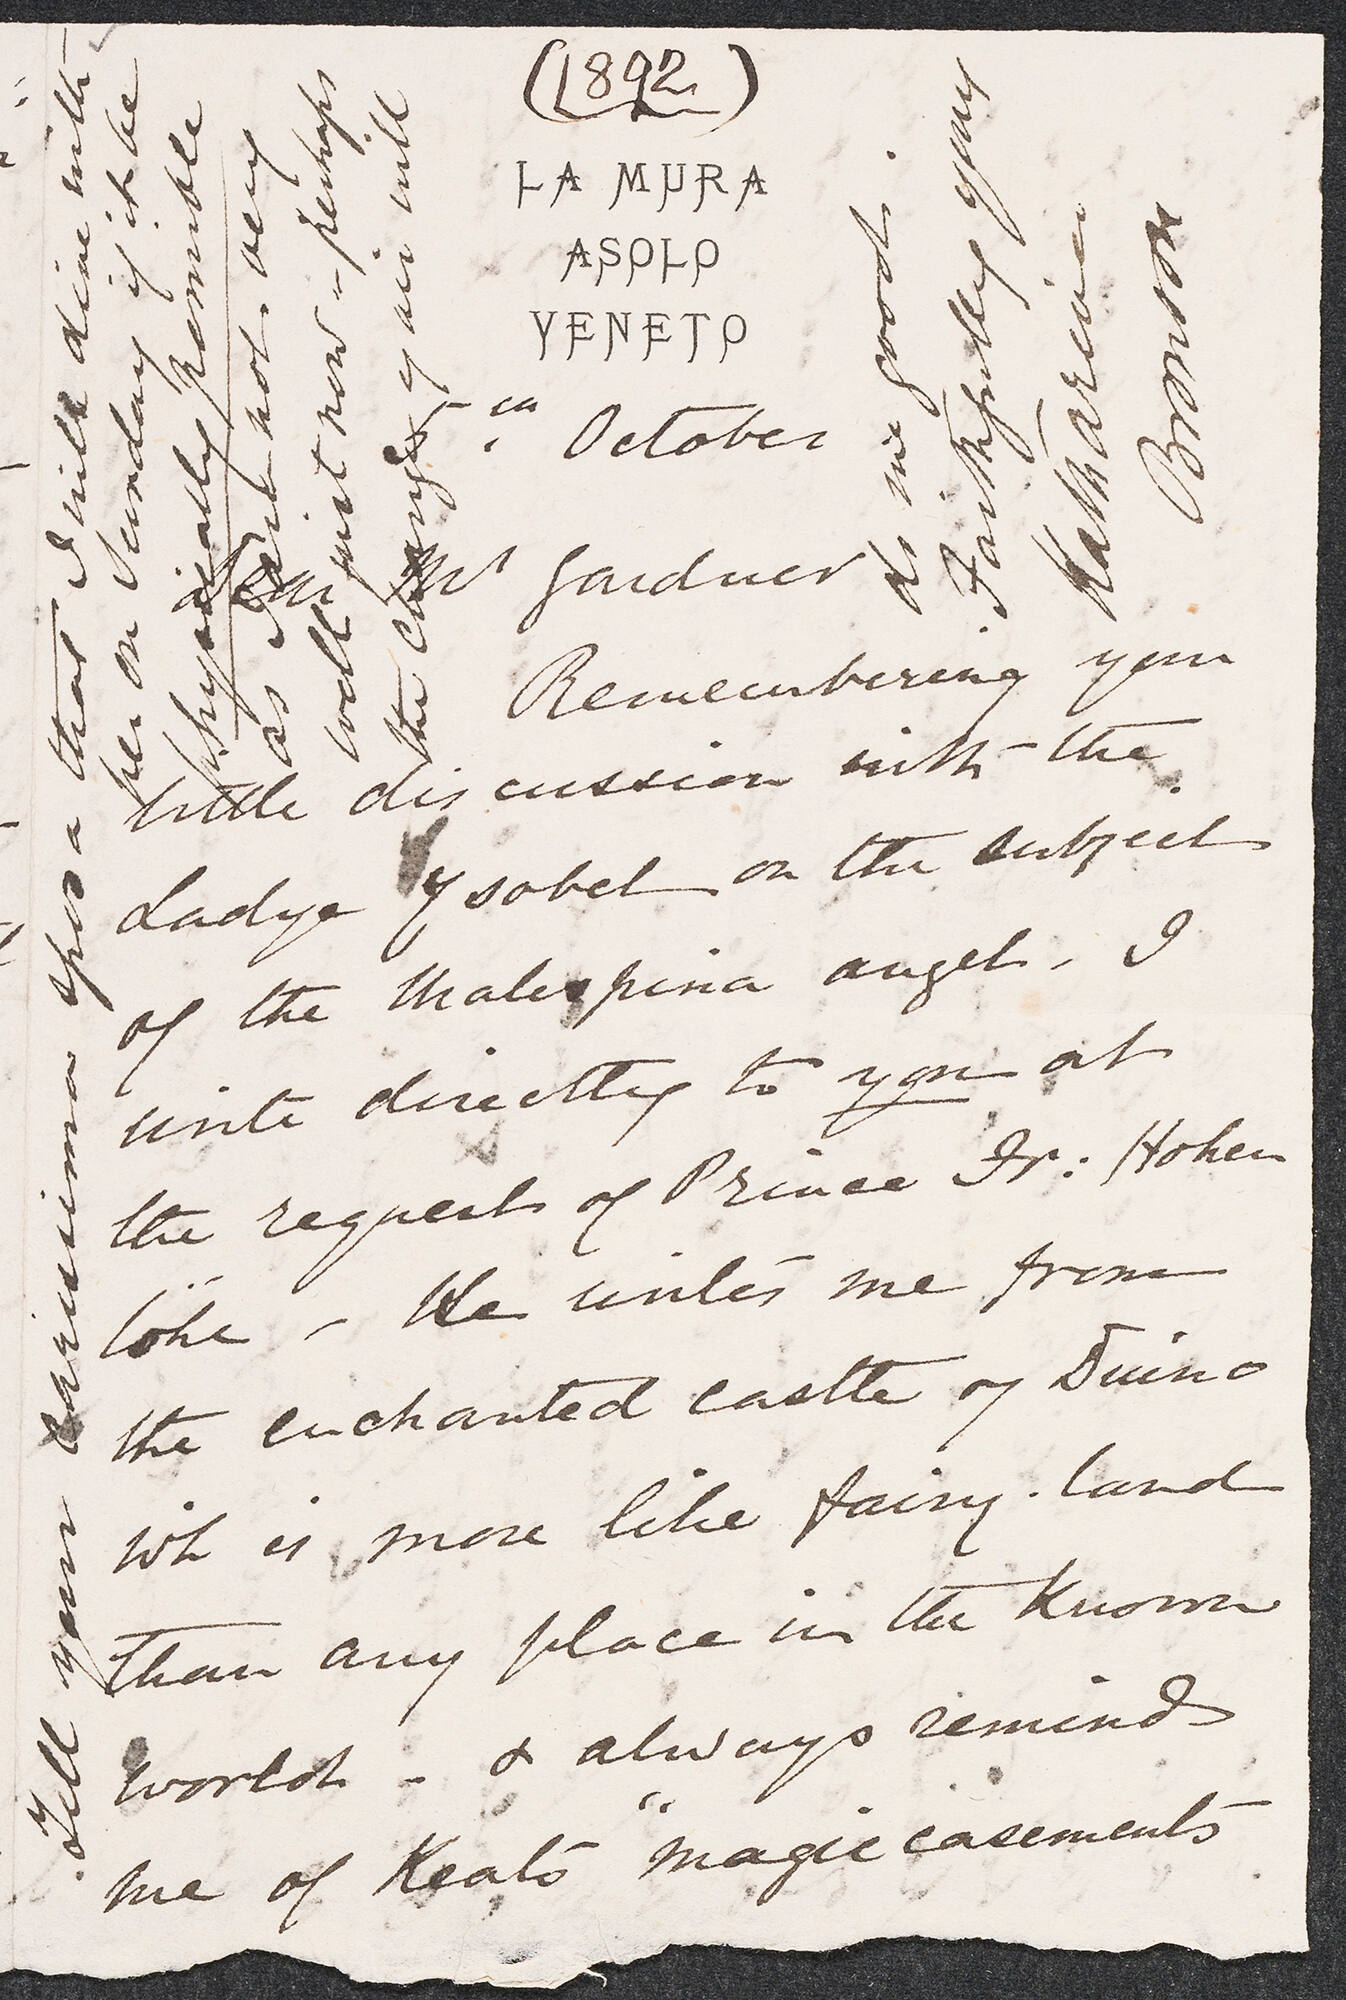 (1892)
LA MURA
ASOLO
VENETO
5 October
Dear Mr Gardner
Remembering your
little discussion with the
Ladye Ysobel on the subject
of the Malespina angel, I
write directly to you at
the request of Prince Fr: Hohen
lohe – He writes me from
the enchanted castle of Duino
wh is more like fairy-land
than any place in the known
world – & always reminds
me of Keats "magic casements
Tell your carissima sposa that I will dine with
her on Sunday if it be
physically possible
as I am not very
well just now – perhaps
the change of air will
do me good.
Faithfully yours
Katharine
Bronson